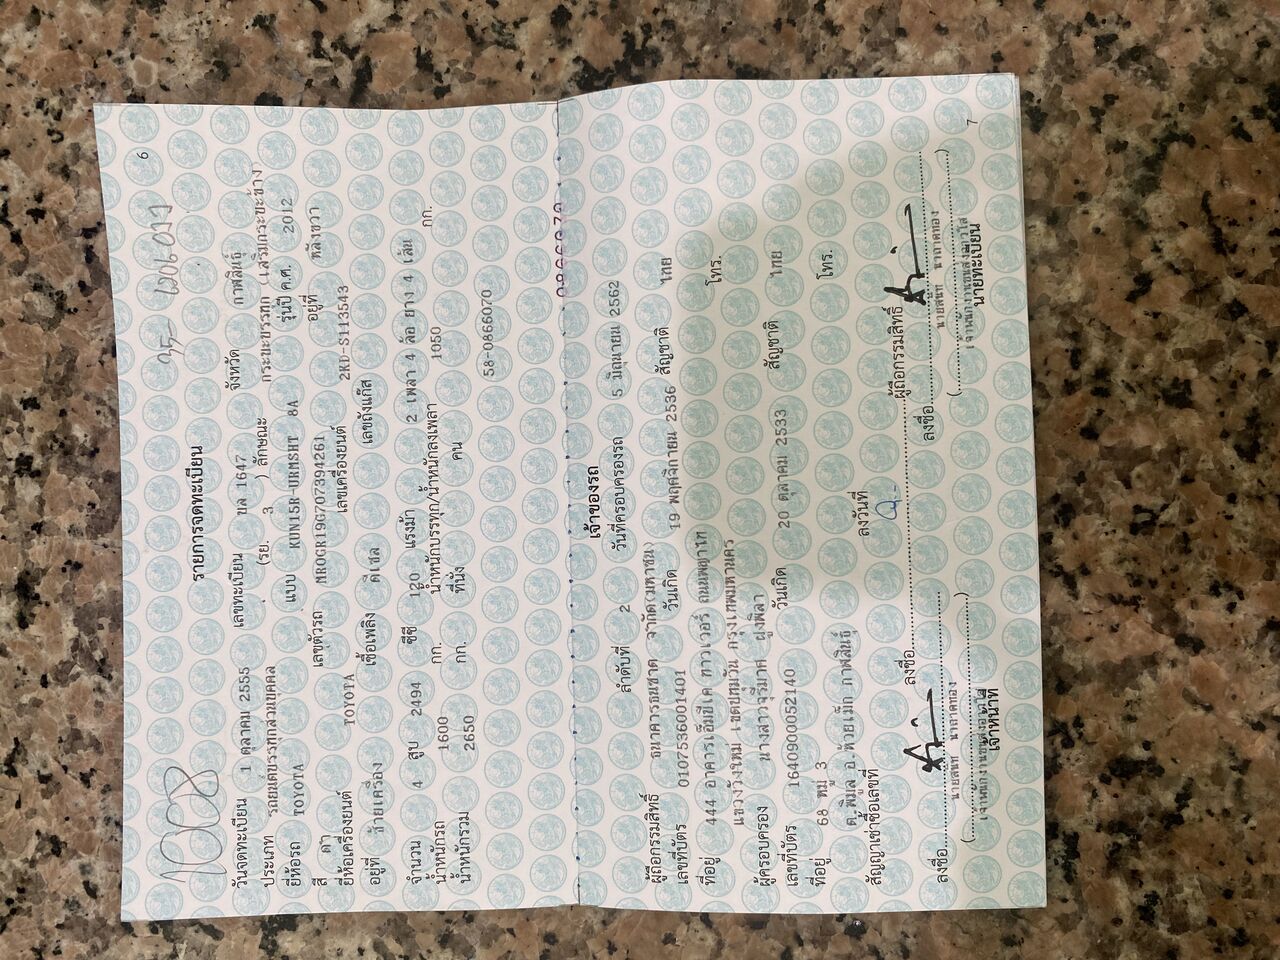 6
1008
รายการจดทะเบียน
วันจดทะเบียน 1 ตุลาคม 2555 เลขทะเบียน ขล 1647 จังหวัด กาฬสินธุ์
ประเภท รถยนต์บรรทุกส่วนบุคคล (รย. 3 ) ลักษณะ กระบะบรรทุก (เสริมกระบะข้าง)
ยี่ห้อรถ TOYOTA แบบ KUN15R-URMSHT 8A รุ่นปี ค.ศ. 2012
สี ดำ เลขตัวรถ MROCR19G707394261 อยู่ที่ หลังขวา
ยี่ห้อเครื่องยนต์ TOYOTA เลขเครื่องยนต์ 2KD-S113543
อยู่ที่ ซ้ายเครื่อง เชื้อเพลิง ดีเซล เลขถังแก๊ส
จำนวน 4 สูบ 2494 ซีซี 120 แรงม้า 2 เพลา 4 ล้อ ยาง 4 เส้น
น้ำหนักรถ 1600 กก. น้ำหนักบรรทุก/น้ำหนักลงเพลา 1050 กก.
น้ำหนักรวม 2650 กก. ที่นั่ง คน
58-0866070
เจ้าของรถ
ลำดับที่ 2 วันที่ครอบครองรถ 5 มิถุนายน 2562
ผู้ถือกรรมสิทธิ์ ธนาคารธนชาต จำกัด(มหาชน)
เลขที่บัตร 0107536001401 วันเกิด 19 พฤศจิกายน 2536 สัญชาติ ไทย
ที่อยู่ 444 อาคารเอ็มบีเค ทาวเวอร์ ถนนพญาไท
แขวงวังใหม่ เขตปทุมวัน กรุงเทพมหานคร โทร.
ผู้ครอบครอง นางสาว
เลขที่บัตร 1640900052140 วันเกิด 20 ตุลาคม 2533 สัญชาติ ไทย
ที่อยู่ 68 หมู่ 3
ต.พิมูล อ.ห้วยเม็ก กาฬสินธุ์ โทร.
สัญญาเช่าซื้อเลขที่ ลงวันที่
ลงชื่อ ผู้ถือกรรมสิทธิ์
ลงชื่อ ลงชื่อ
นายสนิท นาถาดทอง นายสนิท นาถาดทอง
เจ้าหน้าที่ นายทะเบียน
7